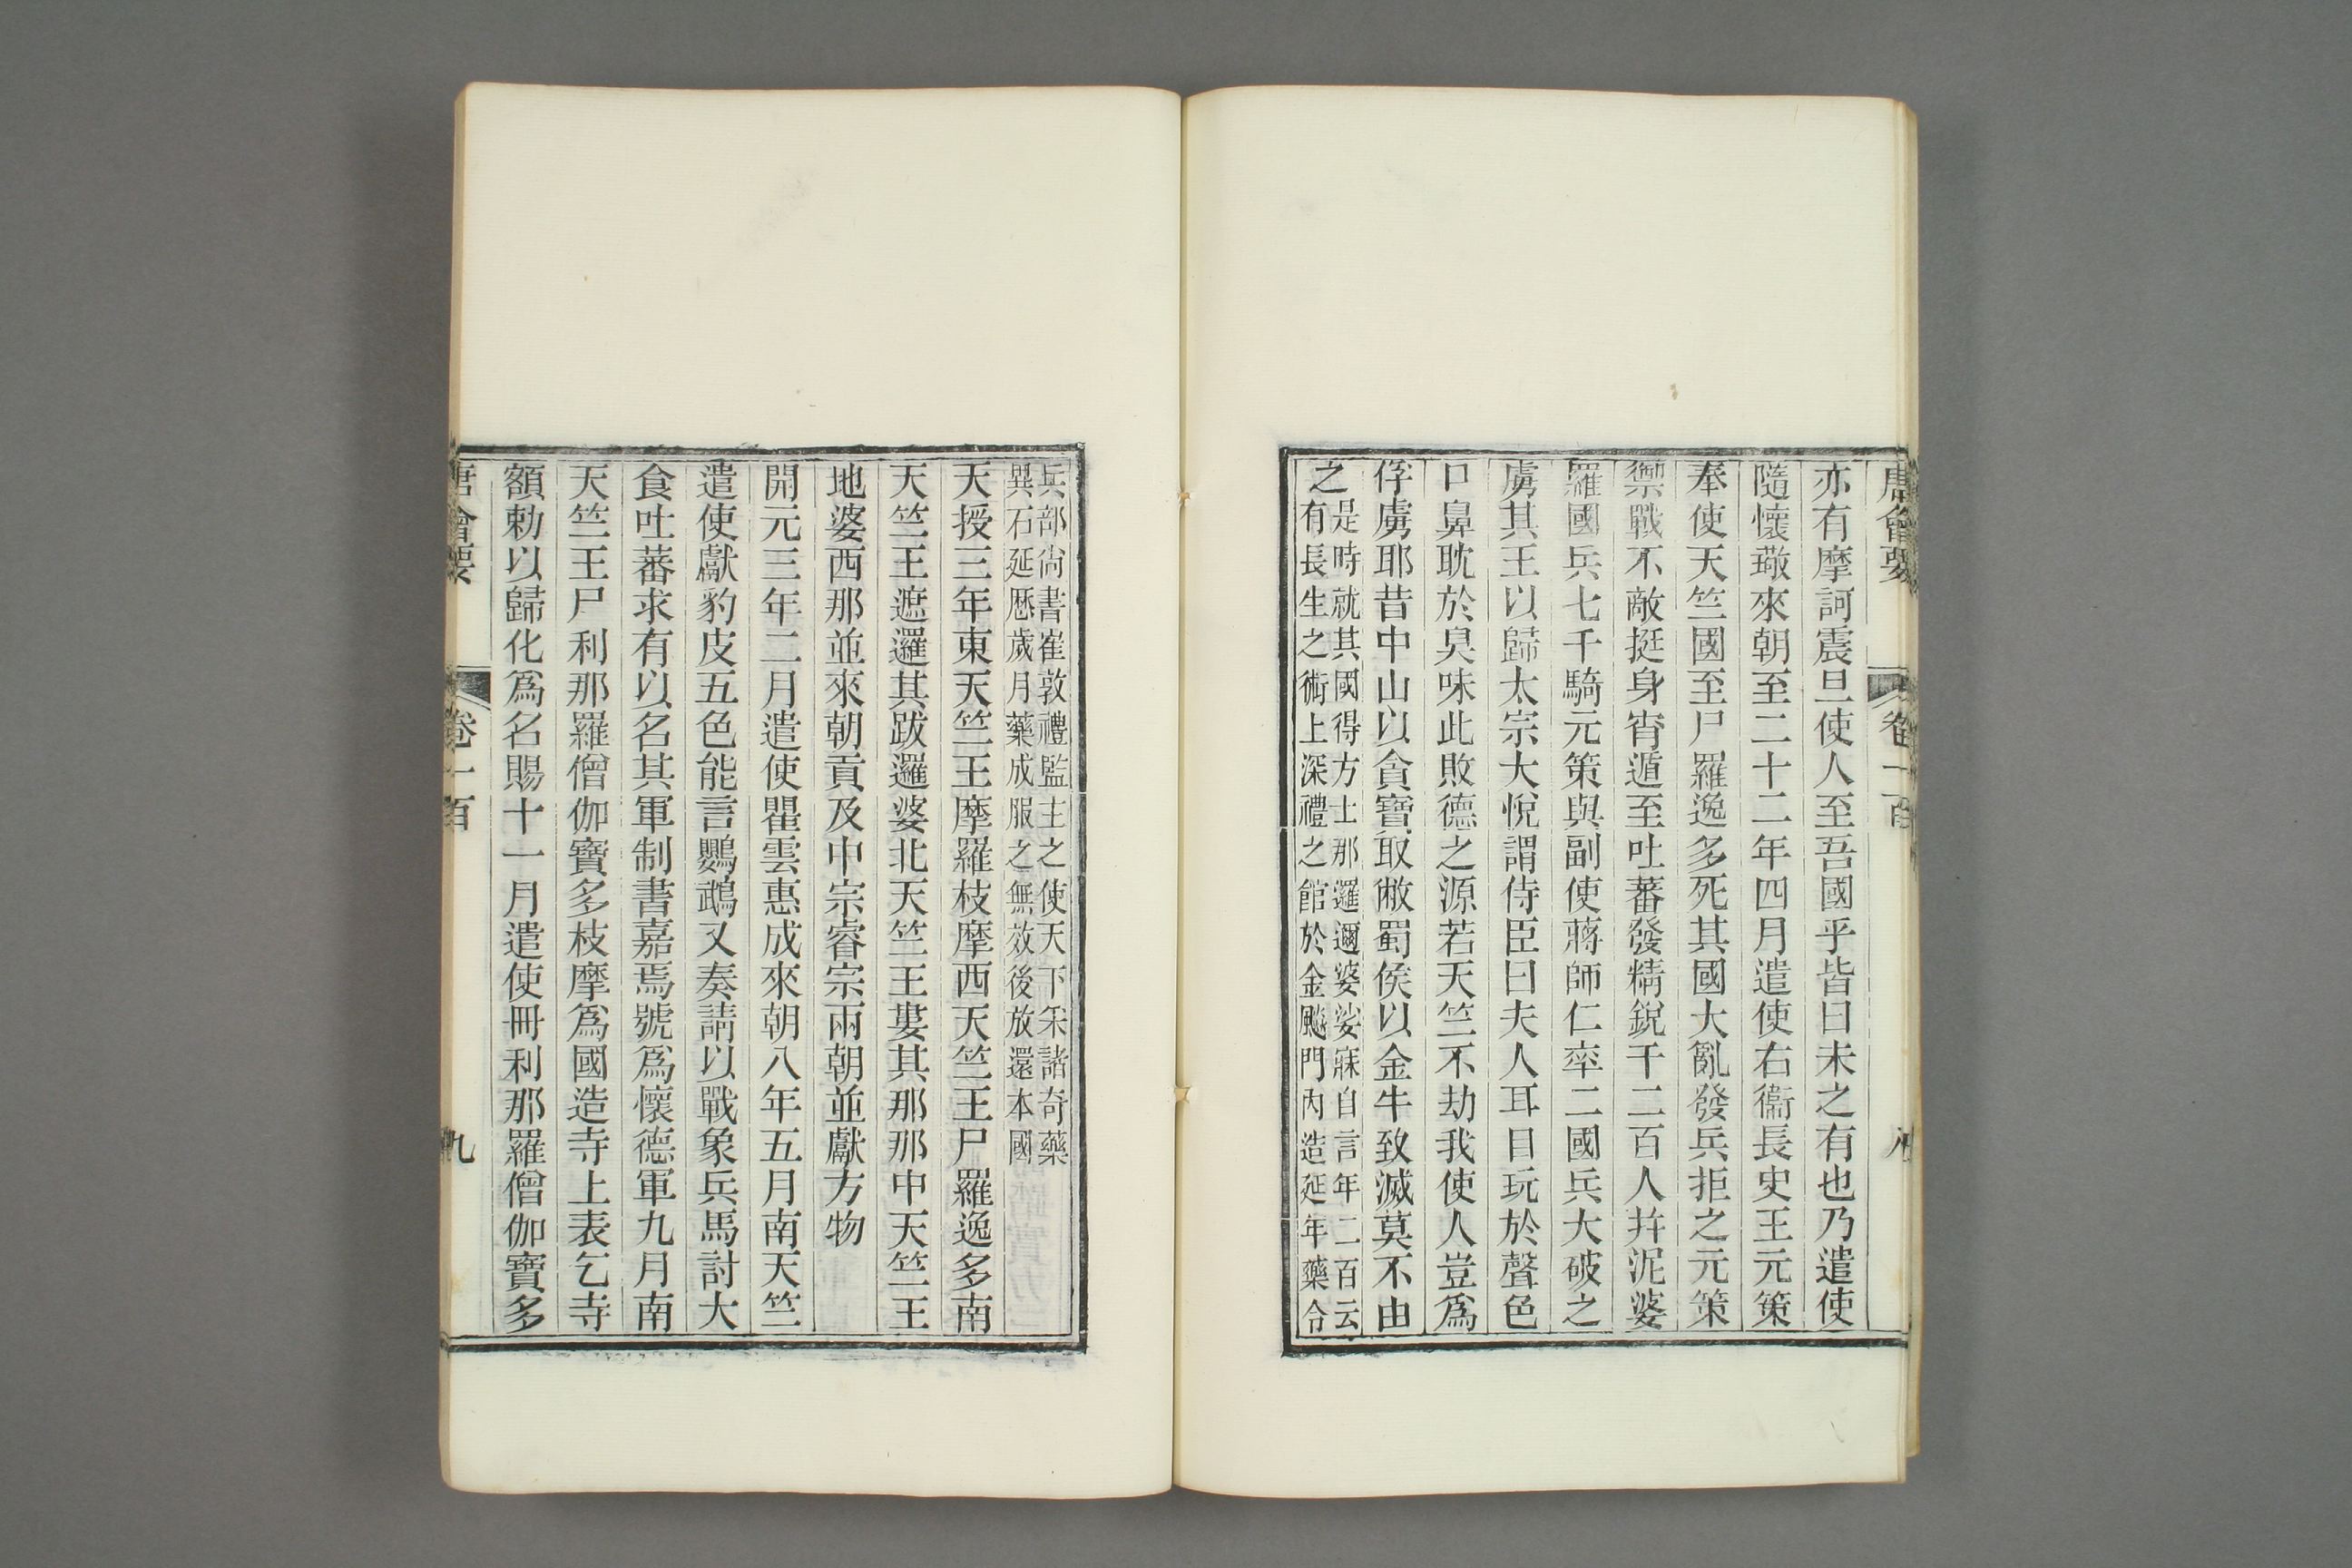 唐會要 卷一百 八
亦有摩訶震旦使人至吾國乎皆曰未之有也乃遣使
隨懷璥來朝至二十二年四月遣使右衞長史王元策
奉使天竺國至尸羅逸多死其國大亂發兵拒之元策
禦戰不敵挺身宵遁至吐蕃發精銳千二百人幷泥婆
羅國兵七千騎元策與副使蔣師仁率二國兵大破之
虜其王以歸太宗大悅謂侍臣曰夫人耳目玩於聲色
口鼻耽於臭味此敗德之源若天竺不劫我使人豈爲
俘虜耶昔中山以貪寶取敝蜀侯以金牛致滅莫不由
之
是時就其國得方士那邏邇婆娑寐自言年二百云
有長生之術上深禮之館於金飈門內造延年藥令
兵部尙書崔敦禮監主之使天下采諸奇藥
異石延歷歲月藥成服之無效後放還本國
天授三年東天竺王摩羅枝摩西天竺王尸羅逸多南
天竺王遮邏其跋邏婆北天竺王婁其那那中天竺王
地婆西那並來朝貢及中宗睿宗兩朝並獻方物
開元三年二月遣使瞿雲惠成來朝八年五月南天竺
遣使獻豹皮五色能言鸚鵡又奏請以戰象兵馬討大
食吐蕃求有以名其軍制書嘉焉號爲懷德軍九月南
天竺王尸利那羅僧伽寶多枝摩爲國造寺上表乞寺
額勅以歸化爲名賜十一月遣使冊利那羅僧伽寶多
唐會要 卷一百 九